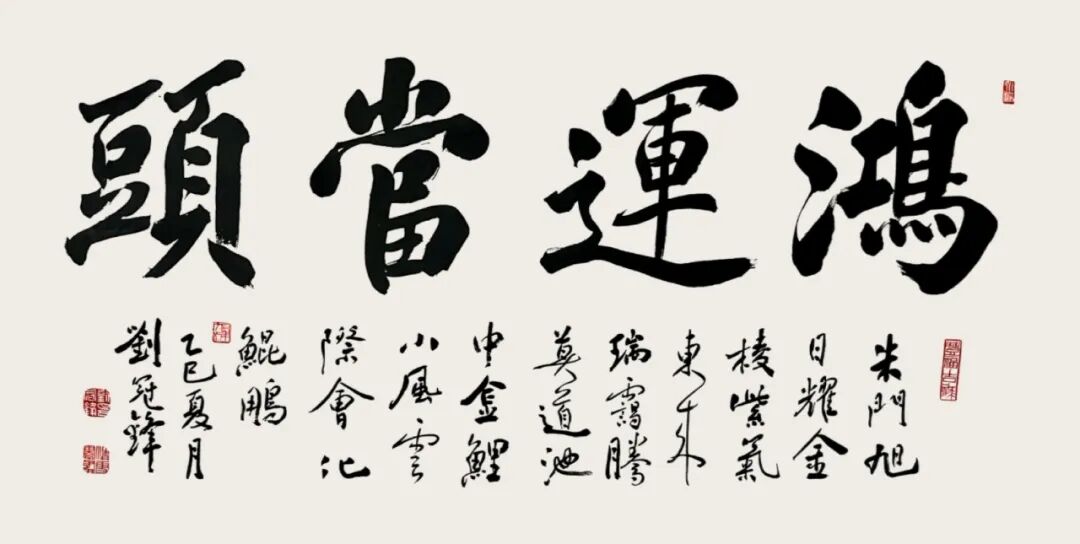 鴻運當頭
朱門旭
日耀金
棱紫氣
東來
瑞靄騰
莫道池
中金鯉
小風雲
際會化
鯤鵬
乙巳夏月
劉冠鋒